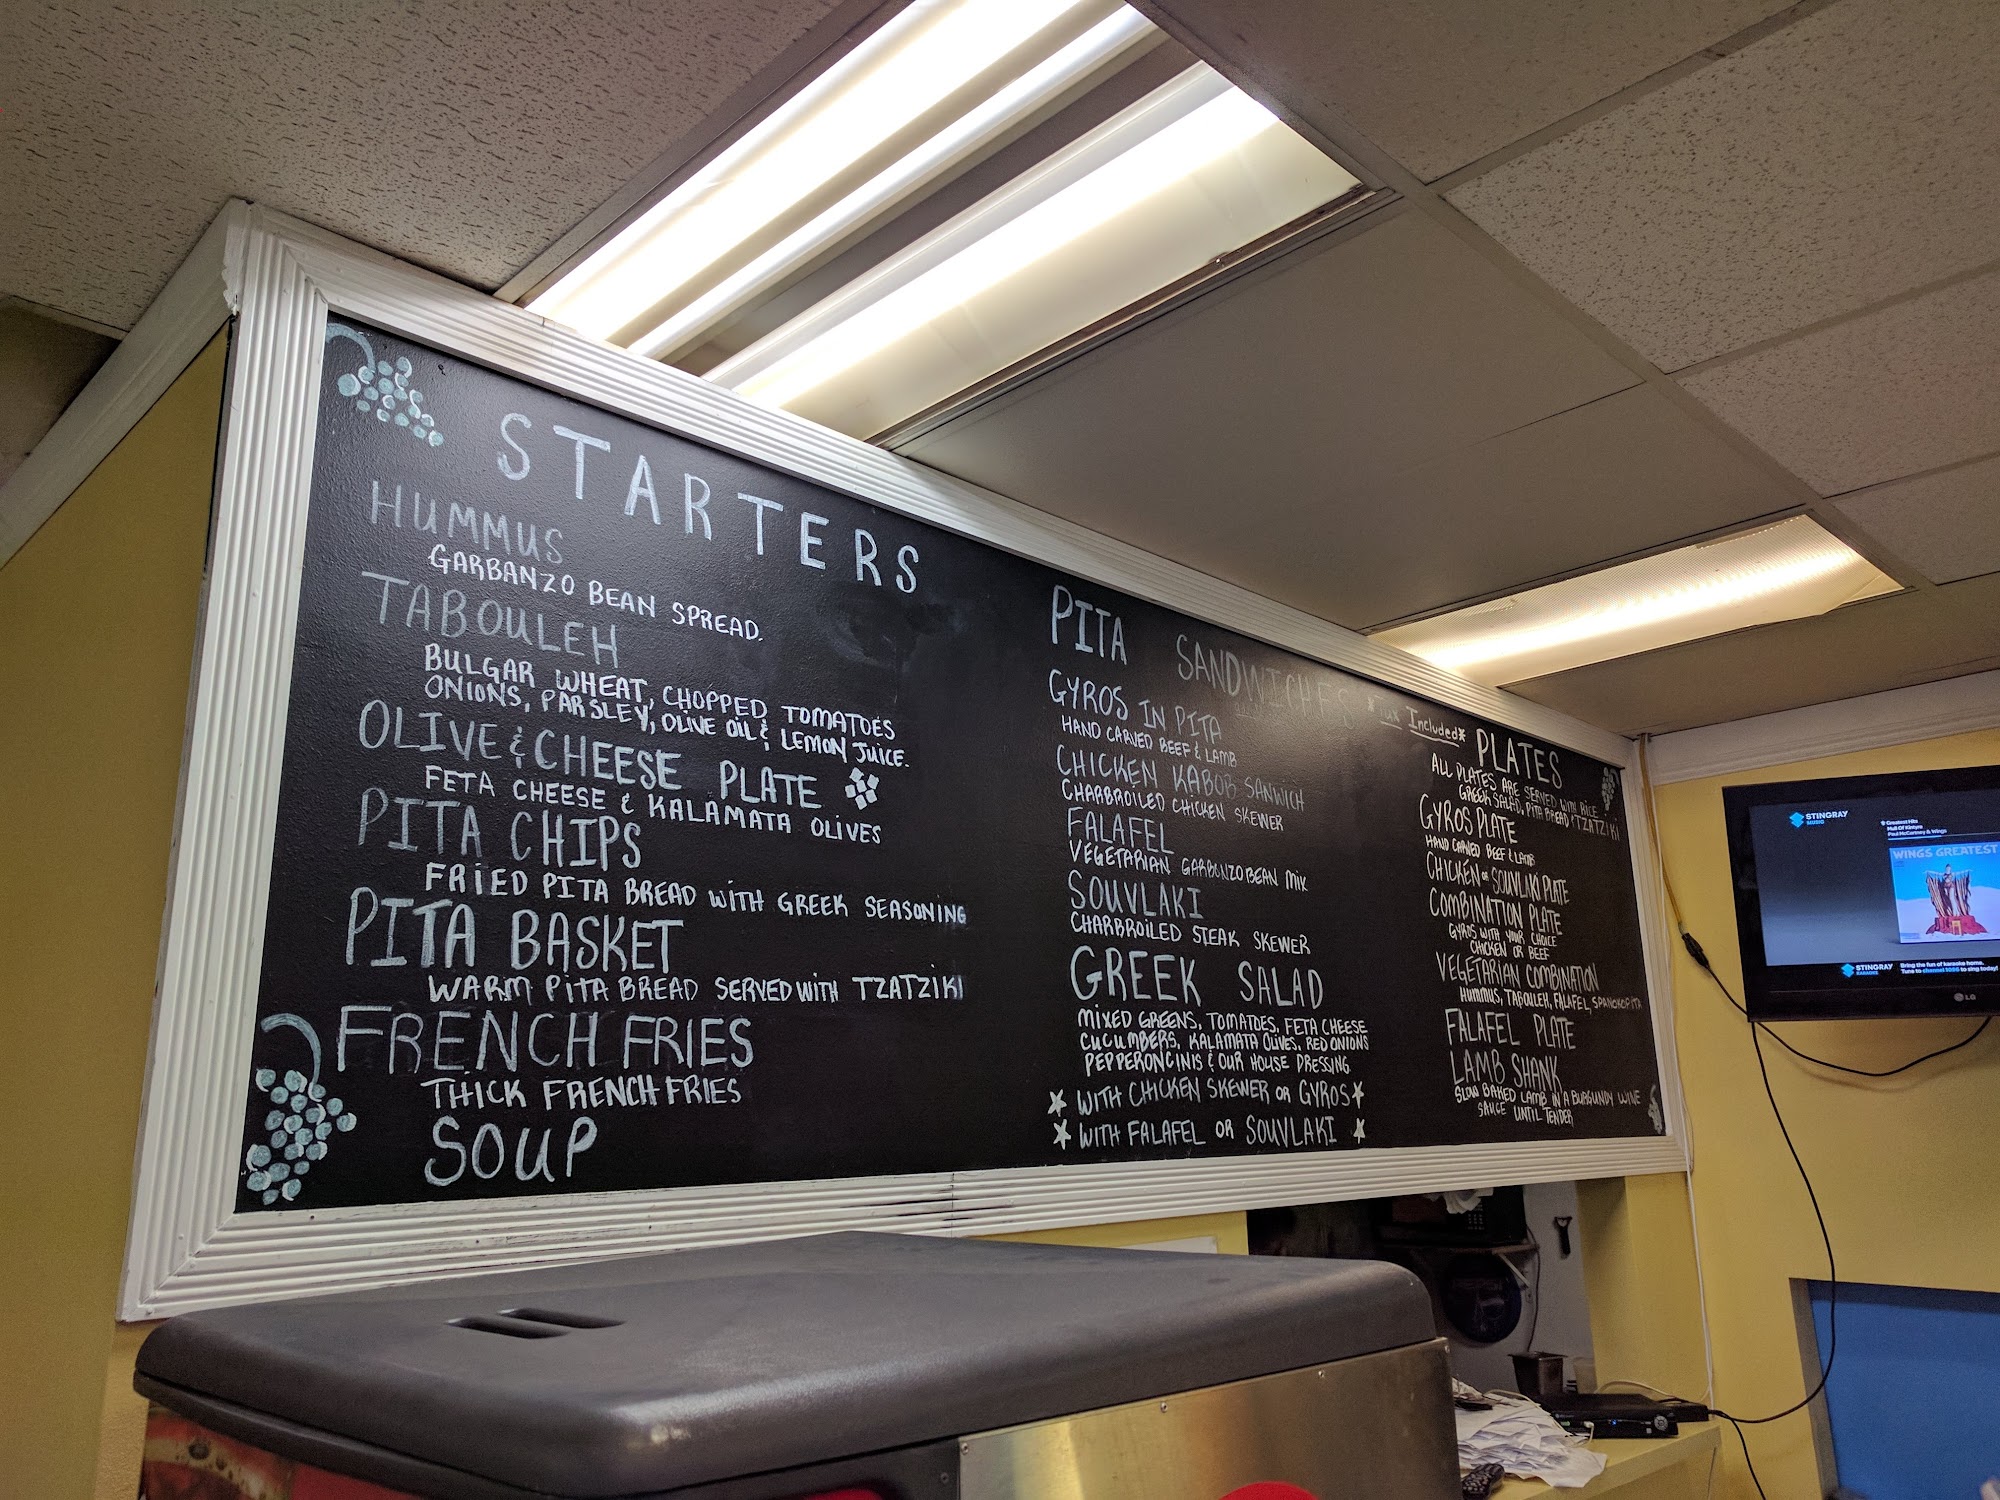 STARTERS
HUMMUS
GARBANZO BEAN SPREAD.
TABOULEH
BULGAR WHEAT, CHOPPED TOMATOES
ONIONS, PARSLEY, OLIVE OIL & LEMON JUICE.
OLIVE & CHEESE PLATE
FETA CHEESE & KALAMATA OLIVES
PITA CHIPS
FRIED PITA BREAD WITH GREEK SEASONING
PITA BASKET
WARM PITA BREAD SERVED WITH TZATZIKI
FRENCH FRIES
THICK FRENCH FRIES
SOUP
PITA SANDWICHES *Tax Included*
GYROS IN PITA
HAND CARVED BEEF & LAMB
CHICKEN KABOB SANWICH
CHARBROILED CHICKEN SKEWER
FALAFEL
VEGETARIAN GARBONZO BEAN MIX
SOUVLAKI
CHARBROILED STEAK SKEWER
GREEK SALAD
MIXED GREENS, TOMATOES, FETA CHEESE
CUCUMBERS, KALAMATA OLIVES, RED ONIONS
PEPPERONCINIS & OUR HOUSE DRESSING
WITH CHICKEN SKEWER OR GYROS
WITH FALAFEL OR SOUVLAKI
PLATES
ALL PLATES ARE SERVED WITH RICE
GREEK SALAD, PITA BREAD & TZATZIKI
GYROS PLATE
HAND CARVED BEEF & LAMB
CHICKEN OR SOUVLAKI PLATE
COMBINATION PLATE
GYROS WITH YOUR CHOICE
CHICKEN OR BEEF
VEGETARIAN COMBINATION
HUMMUS, TABOULEH, FALAFEL, SPANOKOPITA
FALAFEL PLATE
LAMB SHANK
SLOW BAKED LAMB IN A BURGUNDY WINE
SAUCE UNTIL TENDER
STINGRAY
MUSIC
Greatest Hits
Mull Of Kintyre
Paul McCartney & Wings
WINGS GREATEST
STINGRAY
KARAOKE
Bring the fun of karaoke home.
Tune to channel 1026 to sing today!
LG